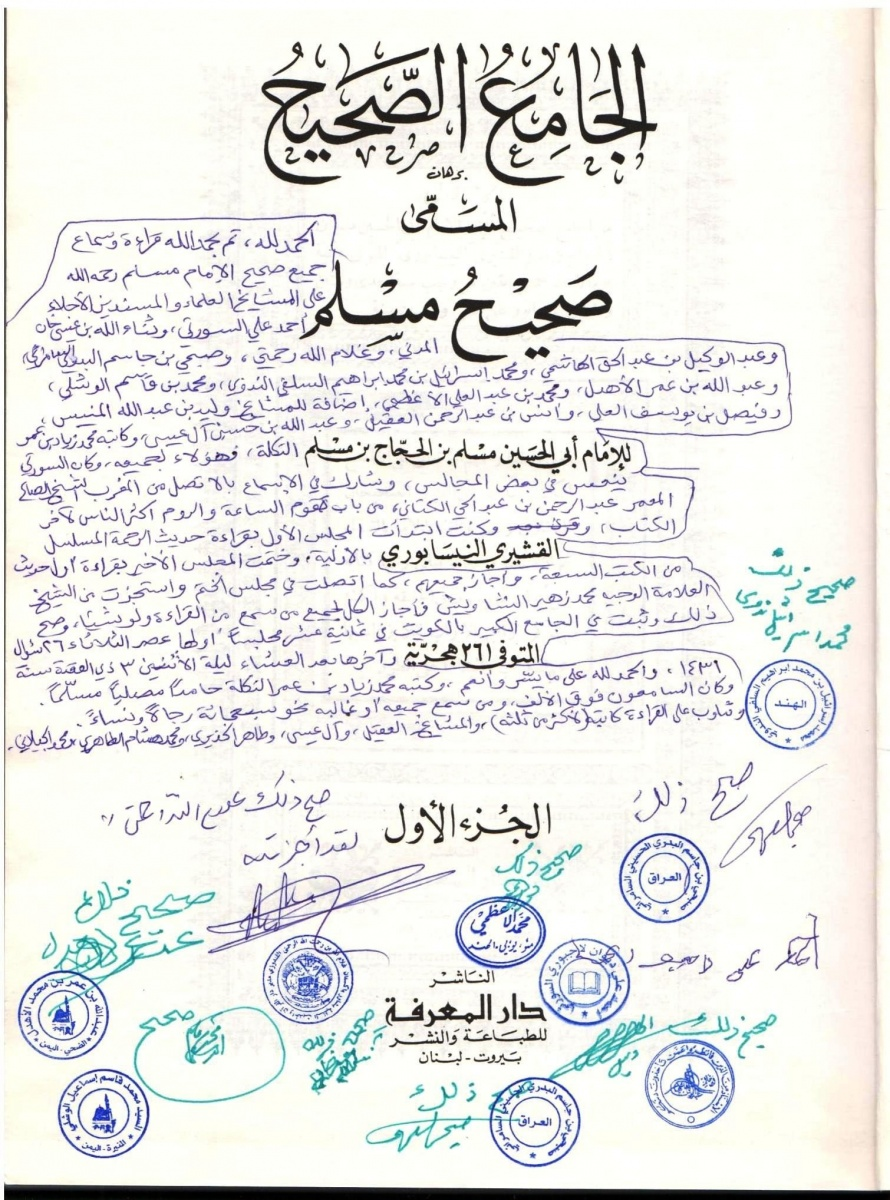 الجَامِعُ الصَّحِيحُ
برهان
المسَمَّى
الحمد لله، تم بحمد الله قراءة وسماع
جميع صحيح الإمام مسلم رحمه الله
على المشايخ العلماء والمسندين الأجلاء
صَحِيْحُ مسْلِم
أحمد علي السورتي، وثناء الله بن عيسى خان
المدني، وغلام الله رحمتي، وصبحي بن جاسم البدري السامرائي
وعبد الوكيل بن عبد الحق الهاشمي، ومحمد إسرائيل بن محمد إبراهيم السلفي الندوي، ومحمد بن قاسم الوشلي
وعبد الله بن عمر الأهدل، ومحمد بن عبد العلي الأعظمي، إضافة للمشايخ وليد بن عبد الله المنيس
وفيصل بن يوسف العلي، وأنس بن عبد الرحمن العقيل، وعبد الله بن حسين آل عيسى، وكاتبه محمد زياد بن عمر
للإمام أبي الحسين مسلم بن الحجّاج بن مسلم
التكلة، فهؤلاء لجميعه، وكان السورتي
ينعس في بعض المجالس، وشارك في الإسماع بالاتصال من المغرب الشيخ الصالح
المعمر عبد الرحمن بن عبد الحي الكتاني، من باب تقوم الساعة والروم أكثر الناس لآخر
الكتاب، وكنت ابتدأت المجلس الأول بقراءة حديث الرحمة المسلسل
القشيري النيسابوري
بالأولية، وختمت المجلس الأخير بقراءة أول حديث
من الكتب السبعة، وأجاز جميعهم، كما اتصلت في مجلس الختم واستجزت من الشيخ
العلامة الوجيه محمد زهير الشاويش فأجاز الكل لجميع من سمع من القراءة ولو شيئا، وصح
ذلك وثبت في الجامع الكبير بالكويت في ثمانية عشر مجلساً أولها عصر الثلاثاء ٢٦ شوال
المتوفى ٢٦١ هجرية
وآخرها بعد العشاء ليلة الاثنين ٣ ذي القعدة سنة
١٤٣١، والحمد لله على ما يسّر وأنعم، وكتبه محمد زياد بن عمر التكلة حامداً مصلياً مسلّماً.
وكان السامعون فوق الألف، ومن سمع جميعه أو غالبه نحو سبعمائة رجالاً ونساءً.
وتناوب على القراءة كاتبه (لأكثر من ثلثه)، والمشايخ العقيل، وآل عيسى، وطاهر الخديري، ومحمد هشام الطاهري، ومحمد الجيلاني.
صحيح ذلك
محمد إسرائيل ندوي
الهند
الجُزء الأول
صح ذلك
لقد أجزته
صح ذلك
صحيح ذلك
العراق
صبحي بن جاسم البدري الحسيني السامرائي
محمد الأعظمي
مئو، يوبي، الهند
صحيح ذلك
عبد الله بن عمر بن محمد الأهدل
الضحي - اليمن
الناشر
دار المعرفة
للطباعة والنشر
بيروت - لبنان
صحيح
صحيح ذلك
السيد محمد قاسم إسماعيل الوشلي
المنيرة - اليمن
ذلك
العراق
صبحي بن جاسم البدري الحسيني السامرائي